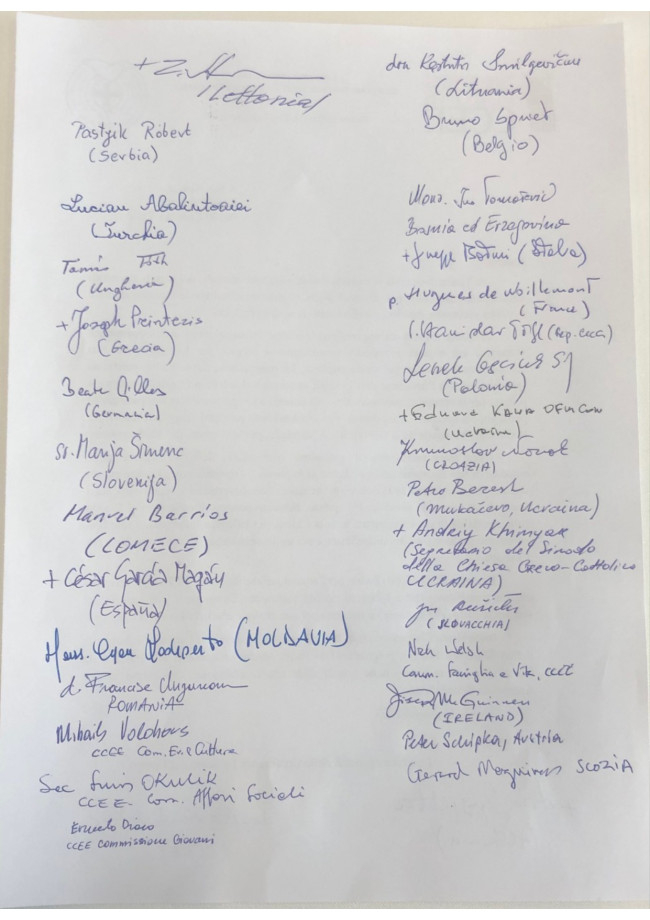 (Lettonia)
Pastyik Róbert
(Serbia)
Lucian Abalintoaiei
(Turchia)
Tamás Tóth
(Ungheria)
+ Joseph Printezis
(Grecia)
Beate Gilles
(Germania)
Sr. Marija Šimenc
(Slovenija)
Manuel Barrios
(COMECE)
+ César García Magán
(España)
Mons. (MOLDAVIA)
d. Francisc Ungureanu
ROMANIA
Mihails Volohovs
CCEE Com. Ev e Cultura
OKULIK
CCEE Com. Affari Sociali
Ernesto Diaco
CCEE Commissione Giovani
don Kęstutis Smilgevičius
(Lithuania)
Bruno Spriet
(Belgio)
Mons. Ivo Tomašević
Bosnia ed Erzegovina
+ Giuseppe (Italia)
p. Hugues de Woillemont
(France)
(Rep. ceca)
Leszek Gęsiak SJ
(Polonia)
+ Eduard Kawa OFMConv
(Ucraina)
Krunoslav Novak
(CROAZIA)
Petro Berezh
(Mukačevo, Ucraina)
+ Andriy Khimyak
(Segretario del Sinodo
della Chiesa Greco-Cattolica
UCRAINA)
(SLOVACCHIA)
Welsh
Comm. famiglia e Vita, CCEE
Joseph McGuinness
(IRELAND)
Peter Schipka, Austria
Gerard Maguiness SCOZIA